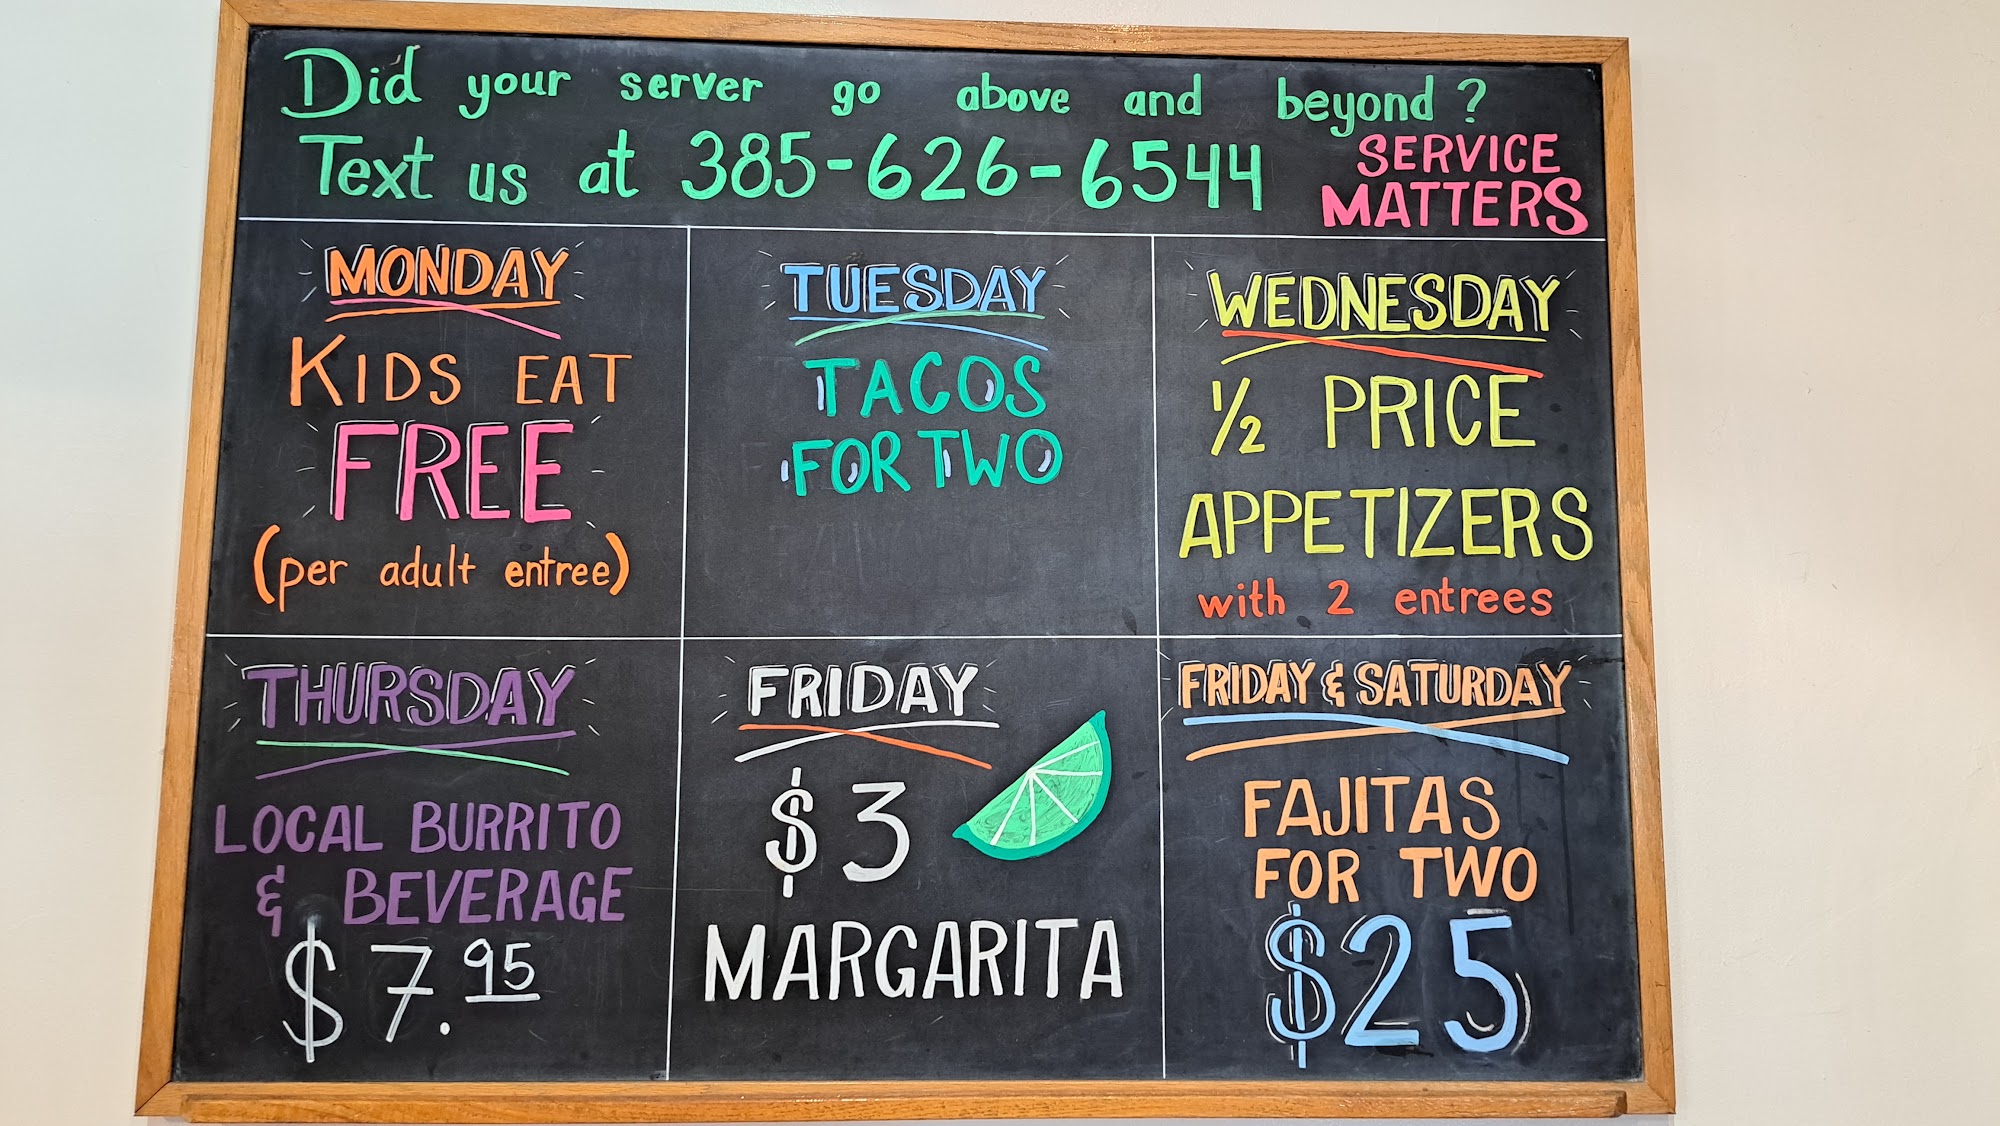 Did your server go above and beyond?
Text us at 385-626-6544
SERVICE
MATTERS
MONDAY
KIDS EAT
FREE
(per adult entree)
TUESDAY
TACOS
FOR TWO
WEDNESDAY
1/2 PRICE
APPETIZERS
with 2 entrees
THURSDAY
LOCAL BURRITO
& BEVERAGE
$7.95
FRIDAY
$3
MARGARITA
FRIDAY & SATURDAY
FAJITAS
FOR TWO
$25